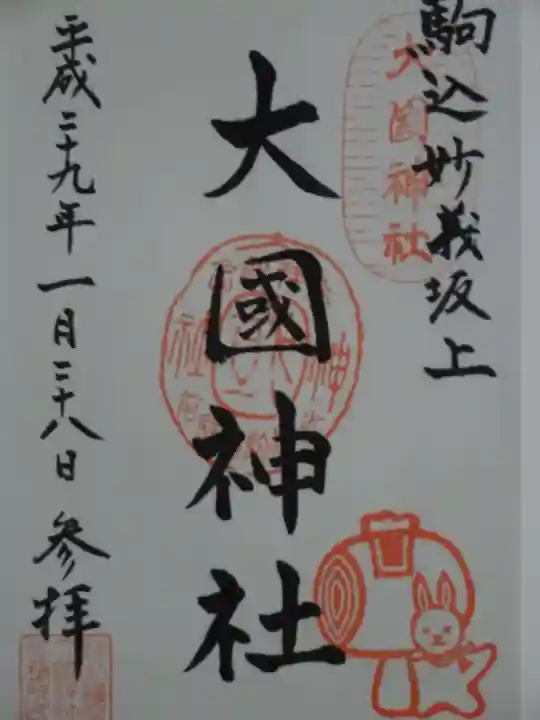 駒込妙義坂上
大国神社
大國神社
平成二十九年一月二十八日 参拝